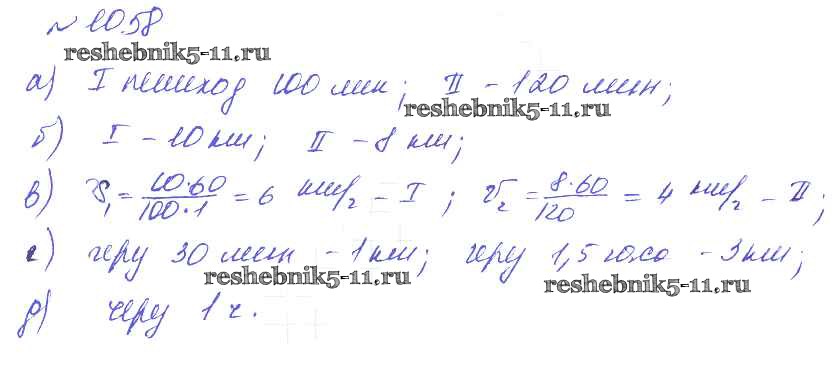 № 1058
reshebnik5-11.ru
а) I пешеход 100 мин; II - 120 мин;
reshebnik5-11.ru
б) I - 10 км; II - 8 км;
в) V₁ = 10·60/100·1 = 6 км/г - I ; V₂ = 8·60/120 = 4 км/г - II;
г) черу 30 мин - 1 км; черу 1,5 часа - 3 км;
reshebnik5-11.ru
reshebnik5-11.ru
д) черу 1 ч.